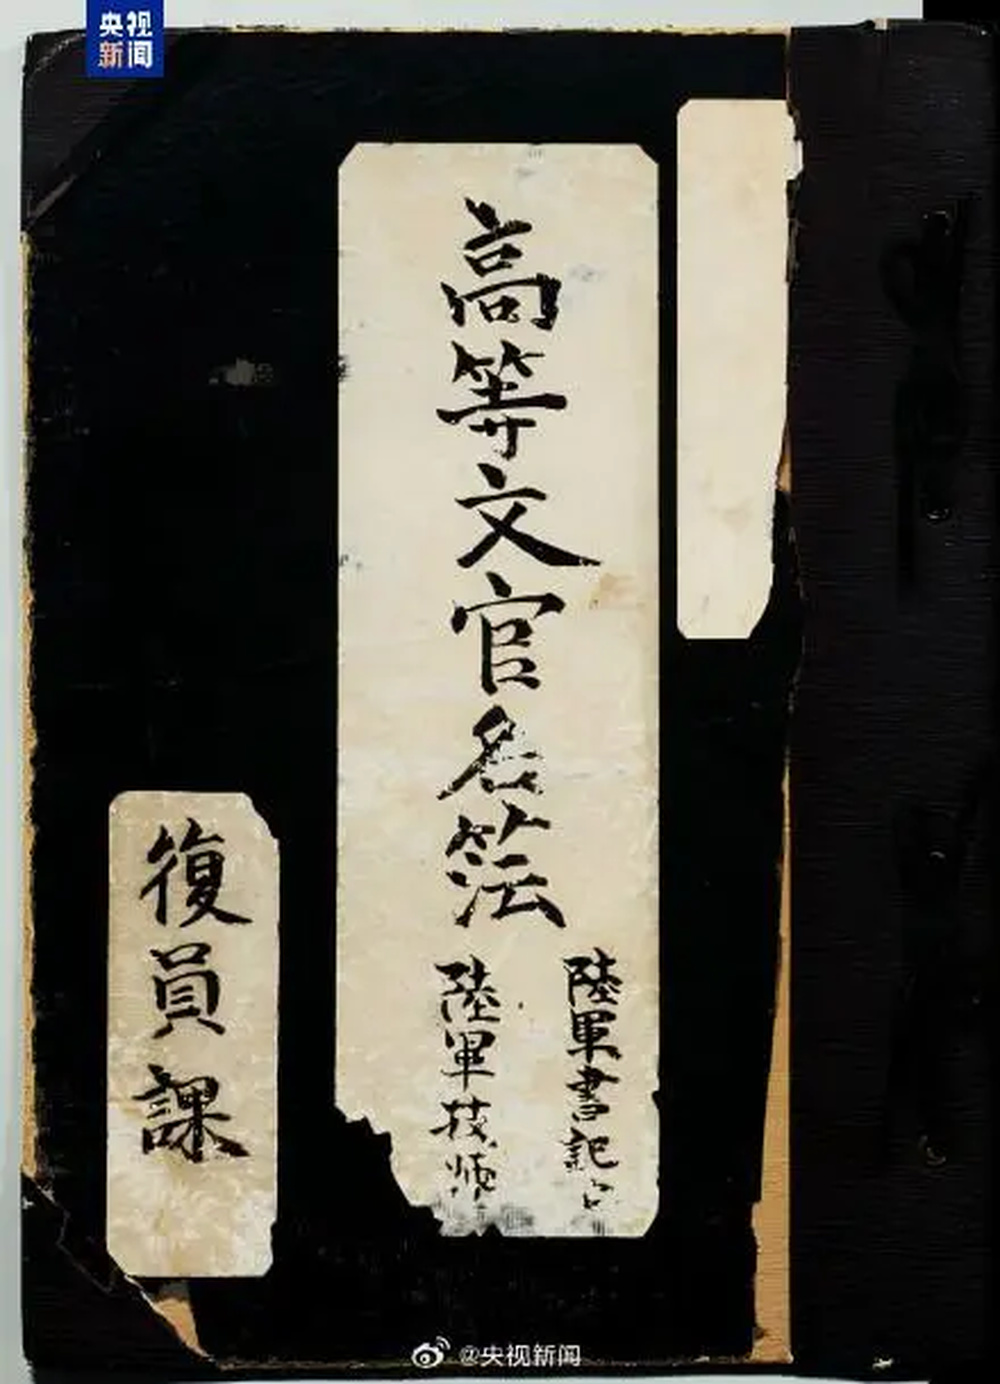 央视
新闻
高等文官名簿
陸軍書記
陸軍技师
復員課
@央视新闻